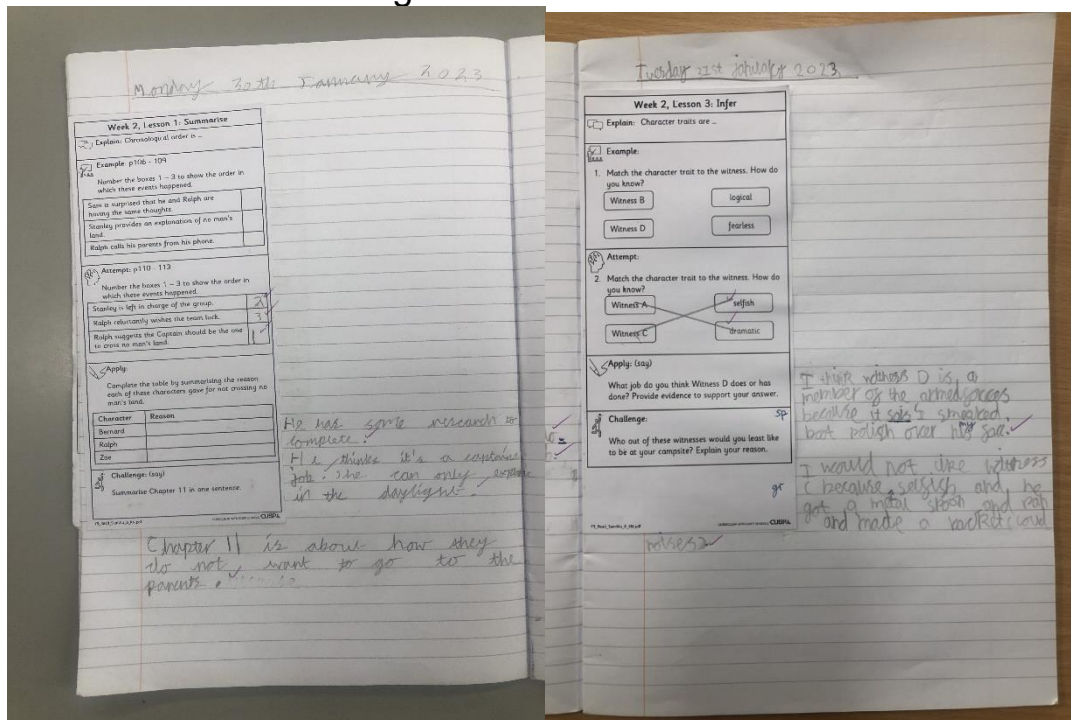 Monday 30th January 2023
Week 2, Lesson 1: Summarise
Explain: Chronological order is ...
Example p106 - 109
Number the boxes 1 – 3 to show the order in
which these events happened.
Sam is surprised that he and Ralph are
having the same thoughts.
Stanley provides an explanation of no man's
land.
Ralph calls his parents from his phone.
Attempt: p110 - 113
Number the boxes 1 – 3 to show the order in
which these events happened.
Stanley is left in charge of the group. 2
Ralph reluctantly wishes the team luck. 3
Ralph suggests the Captain should be the one
to cross no man's land. 1
Apply:
Complete the table by summarising the reason
each of these characters gave for not crossing no
man's land.
Character Reason
Bernard
Ralph
Zoe
He has some research to
complete.
He thinks it's a captains
job. She can only explore
in the daylight.
Challenge: (say)
Summarise Chapter 11 in one sentence.
CUSP
Chapter 11 is about how they
do not want to go to the
parents.
Tuesday 31st January 2023
Week 2, Lesson 3: Infer
Explain: Character traits are ...
Example:
1. Match the character trait to the witness. How do
you know?
Witness B logical
Witness D fearless
Attempt:
2. Match the character trait to the witness. How do
you know?
Witness A selfish
Witness C dramatic
Apply: (say)
What job do you think Witness D does or has
done? Provide evidence to support your answer.
I think witness D is a
member of the armed forces
because it sais I smeaked
boot polish over my face.
sp
Challenge:
Who out of these witnesses would you least like
to be at your campsite? Explain your reason.
gr
I would not like witness
C because selfish and he
got a metal spoon and pan
and made a racket (loud
noises)
CUSP